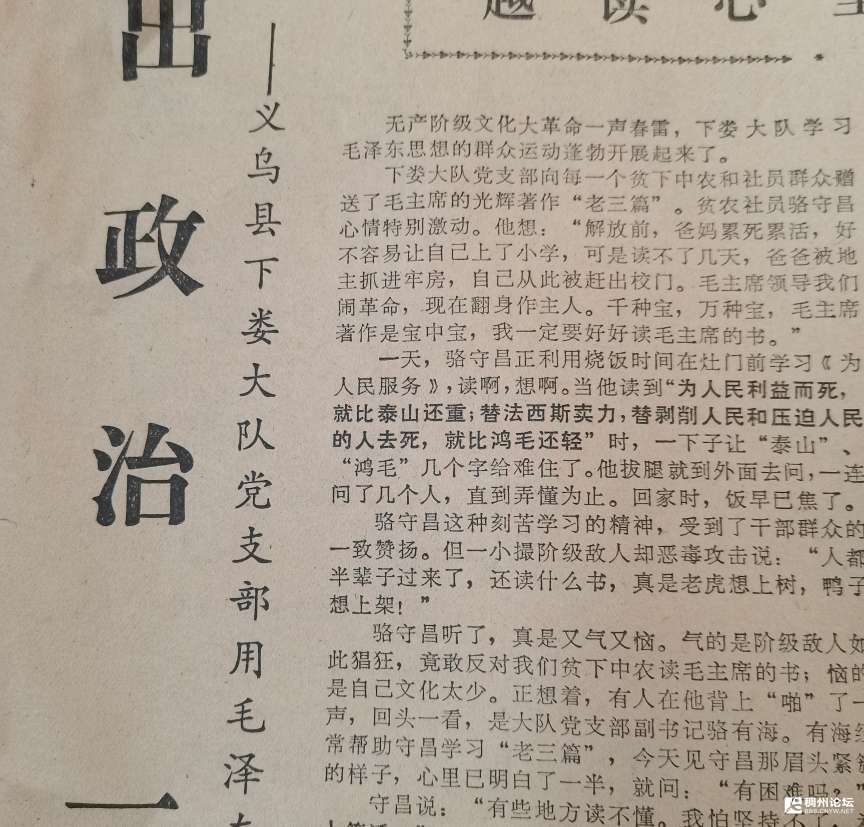 出政治一
——义乌县下娄大队党支部用毛泽东
越读心
无产阶级文化大革命一声春雷，下娄大队学习
毛泽东思想的群众运动蓬勃开展起来了。
下娄大队党支部向每一个贫下中农和社员群众赠
送了毛主席的光辉著作“老三篇”。贫农社员骆守昌
心情特别激动。他想：“解放前，爸妈累死累活，好
不容易让自己上了小学，可是读不了几天，爸爸被地
主抓进牢房，自己从此被赶出校门。毛主席领导我们
闹革命，现在翻身作主人。千种宝，万种宝，毛主席
著作是宝中宝，我一定要好好读毛主席的书。”
一天，骆守昌正利用烧饭时间在灶门前学习《为
人民服务》，读啊，想啊。当他读到“为人民利益而死，
就比泰山还重；替法西斯卖力，替剥削人民和压迫人民
的人去死，就比鸿毛还轻”时，一下子让“泰山”、
“鸿毛”几个字给难住了。他拔腿就到外面去问，一连
问了几个人，直到弄懂为止。回家时，饭早已焦了。
骆守昌这种刻苦学习的精神，受到了干部群众的
一致赞扬。但一小撮阶级敌人却恶毒攻击说：“人都
半辈子过来了，还读什么书，真是老虎想上树，鸭子
想上架！”
骆守昌听了，真是又气又恼。气的是阶级敌人如
此猖狂，竟敢反对我们贫下中农读毛主席的书；恼的
是自己文化太少。正想着，有人在他背上“啪”了一
声，回头一看，是大队党支部副书记骆有海。有海经
常帮助守昌学习“老三篇”，今天见守昌那眉头紧锁
的样子，心里已明白了一半，就问：“有困难吗？”
守昌说：“有些地方读不懂。我怕坚持不了，
稠州论坛
BBS.CNYW.NET